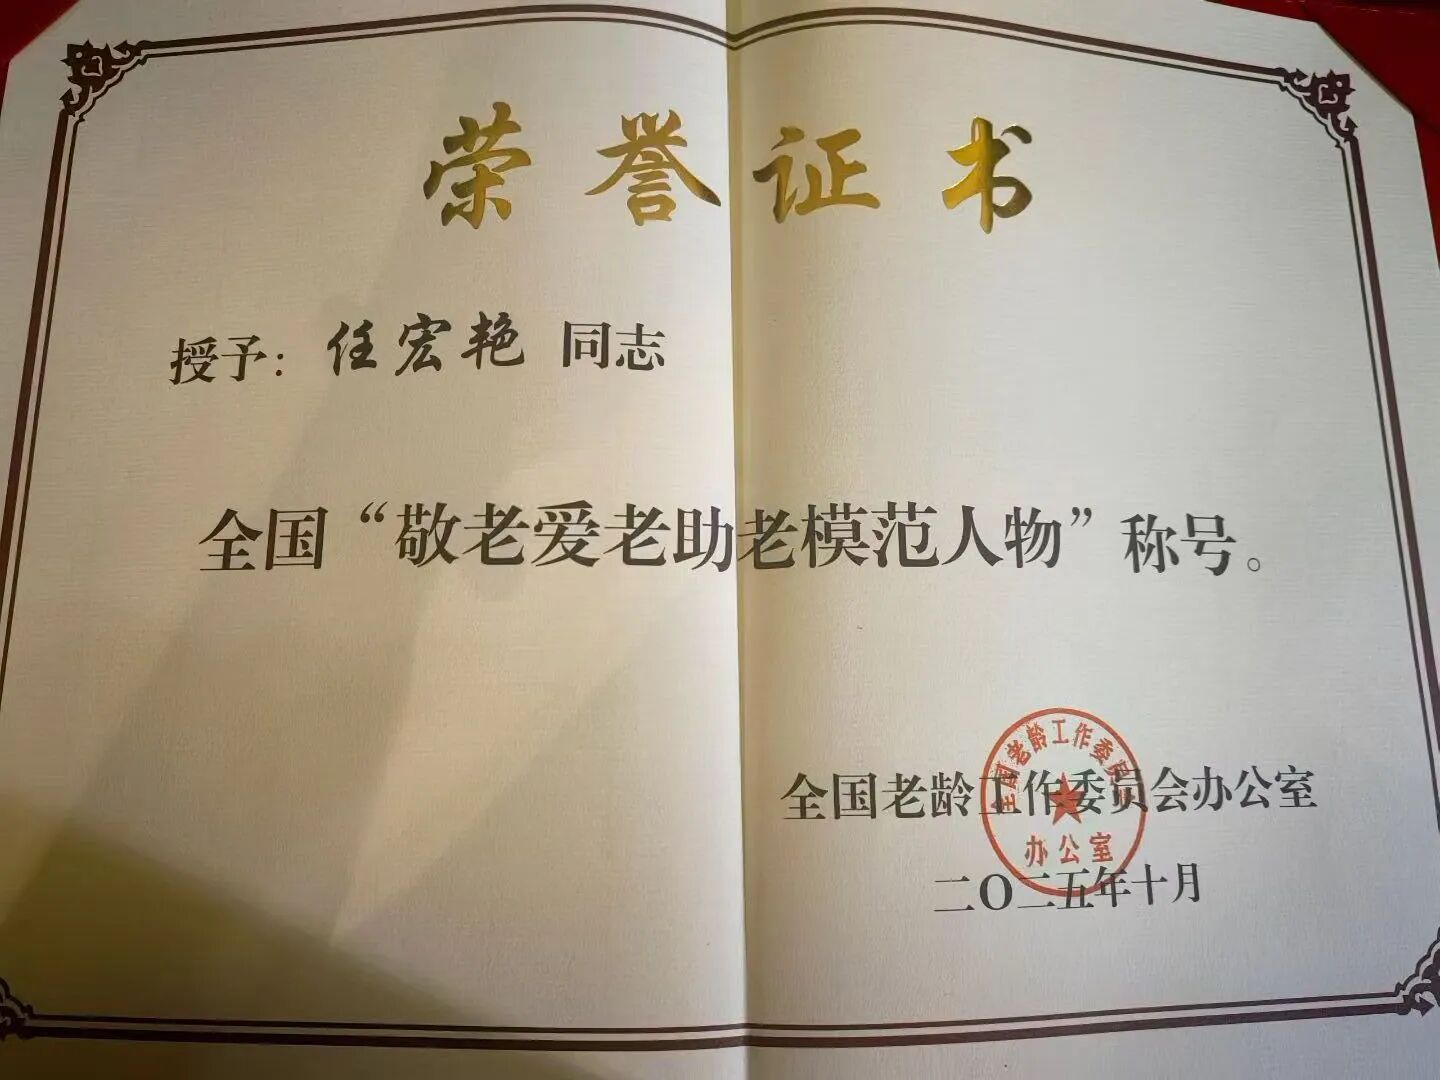 荣誉证书
授予：任宏艳 同志
全国“敬老爱老助老模范人物”称号。
全国老龄工作委员会办公室
二〇二五年十月
全国老龄工作委员会
办公室